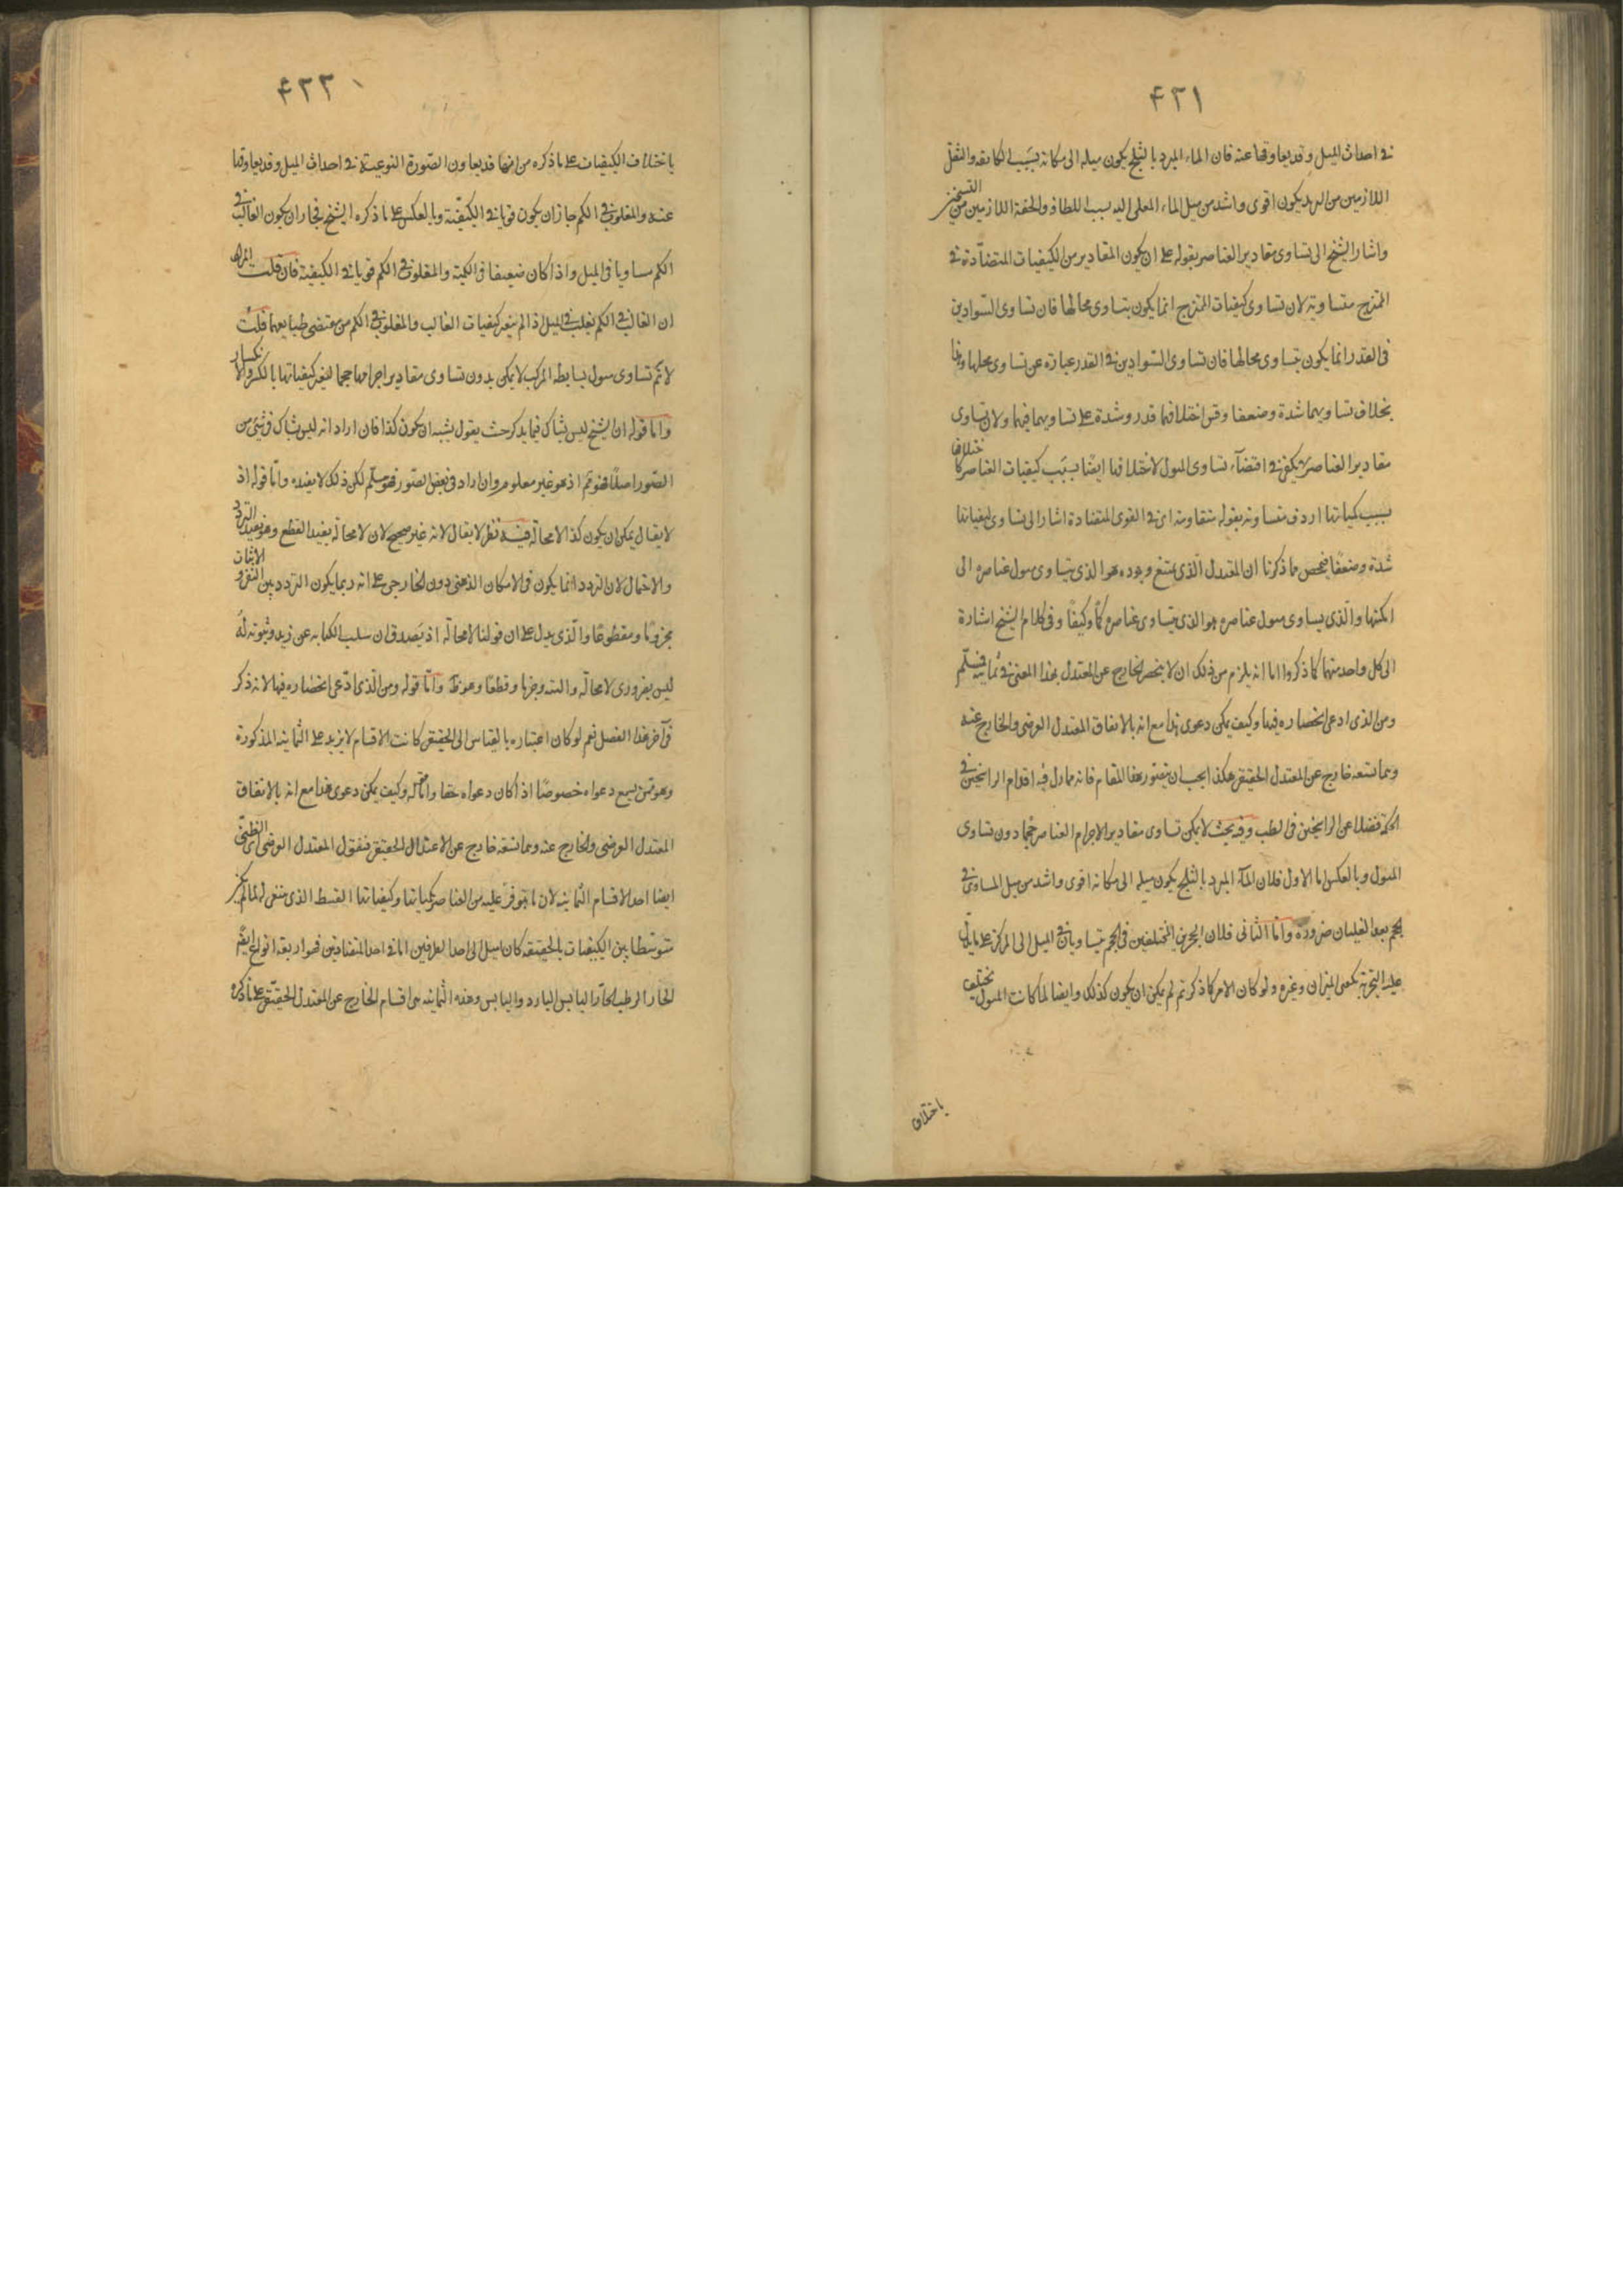 ۴۲۱
فى احداث الميل و قد يعاوقها عنه فان الماء المبرد بالثلج يكون ميله الى مكانه بسبب الكثافة والثقل
اللازمين من البرد يكون اقوى واشد من ميل الماء المغلى اليه بسبب اللطافة والخفة اللازمين من التسخين
واشار الشيخ الى تساوى مقادير العناصر بقوله على ان يكون المقادير من الكيفيات المتضادّة فى
الممتزج متساوية لان تساوى كيفيات الممتزج انما يكون بتساوى محالها فان تساوى السوادين
فى القدر انما يكون بتساوى محالها فان تساوى السوادين فى القدر عبارة عن تساوى محلها وهذا
بخلاف تساويهما شدة وضعفا وقس اختلافهما قدر وشدة على تساويهما فيهما ولان تساوى
مقادير العناصر لا يكفى فى اقتضآء تساوى الميول لاختلافها ايضًا بسبب كيفيات العناصر كاختلافها
بسبب كمياتها اردف متساوية بقوله متقاومة اى فى القوى المتضادة اشار الى تساوى كيفياتها
شدة وضعفًا فخص مما ذكرنا ان المعتدل الّذى يمتنع وجوده هو الذى يتساوى ميول عناصره الى
امكنتها والّذى يساوى ميول عناصره هو الذى يتساوى عناصره كمًّا وكيفًا وفى كلام الشيخ اشارة
الى كل واحد منهما كما ذكروا اما انه يلزم من ذلك ان لا ينحصر الخارج عن المعتدل بهذا المعنى فى ثمانية فمسلّم
ومن الذى ادعى انحصاره فيها وكيف يمكن دعوى هذا مع انه بالاتفاق المعتدل العرضى والخارج عنه
وبما تسعه خارج عن المعتدل الحقيقى هكذا يجب ان يتصور هذا المقام فانه مما زل فيه اقدام الراسخين فى
الحكمة فضلا عن الراسخين فى الطب وفيه بحث لا يمكن تساوى مقادير الاجرام العناصر حجما دون تساوى
الميول وبالعكس اما الاول فلان المآء المبرد بالثلج يكون ميله الى مكانه اقوى واشد من ميل المساوى فى
الحجم بعد الغليان ضرورة واما الثانى فلان الحجرين المختلفين فى الحجم يتساويان فى الميل الى المركز على ما يدلّ
عليه التجربة بكفتى الميزان وغيره ولو كان الامر كما ذكرتم لم يمكن ان يكون كذلك وايضا لما كانت الميول يختلف
باختلاف
۴۲۲
باختلاف الكيفيات على ما ذكره من انها قد يعاون الصّورة النوعيّة فى احداث الميل وقد يعاوقها
عنه والمغلوب فى الكم جاز ان يكون قويا فى الكيفيّة وبالعكس على ما ذكره الشيخ فجاز ان يكون الغالب فى
الكم مساويا فى الميل واذا كان ضعيفا فى الكمية والمغلوب فى الكم قويا فى الكيفية فان قلت المراد
ان الغالب فى الكم يغلب فى الميل اذا لم يتغير كيفيات الغالب والمغلوب فى الكم من مقتضى طبايعهما قلتُ
لا ثَم تساوى ميول بسايط المركب لا يمكن بدون تساوى مقادير اجرامها حجما لتغير كيفياتها بالكسر والانكسار
واما قوله ان الشيخ ليس بشاك فيما يذكر حيث يقول يشبه ان يكون كذا فان اراد انه ليس بشاك فى شئ من
الصّور اصلًا فهو ثَم اذ هو غير معلوم وان اراد فى بعض الصّور فهو مسلّم لكن ذلك لا يفيده وامّا قوله اذ
لا يقال يمكن ان يكون كذا لا محالة ففيه نظر لا يقال لانه غير صحيح لان لا محالة يفيد القطع وهو يفيد التردد
والاحتمال لان التردد انما يكون فى الامكان الذهنى دون الخارجى على انه ربما يكون التردد بين النفى والاثبات
مجزومًا ومقطوعًا والّذى يدل على ان قولنا لا محالة اذ يَصدق ان سلب الكتابه عن زيد وثبوته لَهُ
ليس بضرورى لا محالة والبته وجزما وقطعًا وهو ظ وامّا قوله ومن الّذى ادّعى انحصاره فيها لانه ذكر
فى آخر هذا الفصل نعم لو كان اعتباره بالقياس الى الحقيقى كانت الاقسام لا يزيد على الثمانيه المذكورة
وهو ممن يسمع دعواه خصوصًا اذا كان دعواه حقا واما انه وكيف يمكن دعوى هذا مع انه بالاتفاق
المعتدل العرضى والخارج عنه وبما تسعه خارج عن الاعتدال الحقيقى فنقول المعتدل العرضى الطبى
ايضا احد الاقسام الثمانيه لان ما توفر عليه من العناصر بكمياتها وكيفياتها القسط الذى ينبغى له لما لم يكن
متوسّطا بين الكيفيات بالحقيقه كان اميل الى احد الطرفين اما فى احد المتضادتين فهو اربعة انواع ايضًا
الحار الرطب الحارّ اليابس البارد واليابس وهذه الثمانيه من اقسام الخارج عن المعتدل الحقيقىّ على ما ذكره